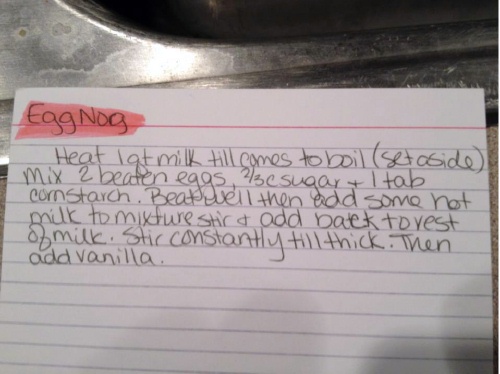 Egg Nog
Heat 1 qt milk till comes to boil (set aside)
Mix 2 beaten eggs, 2/3 c sugar + 1 tab
cornstarch. Beat well then add some hot
milk to mixture stir & add back to rest
of milk. Stir constantly till thick. Then
add vanilla.